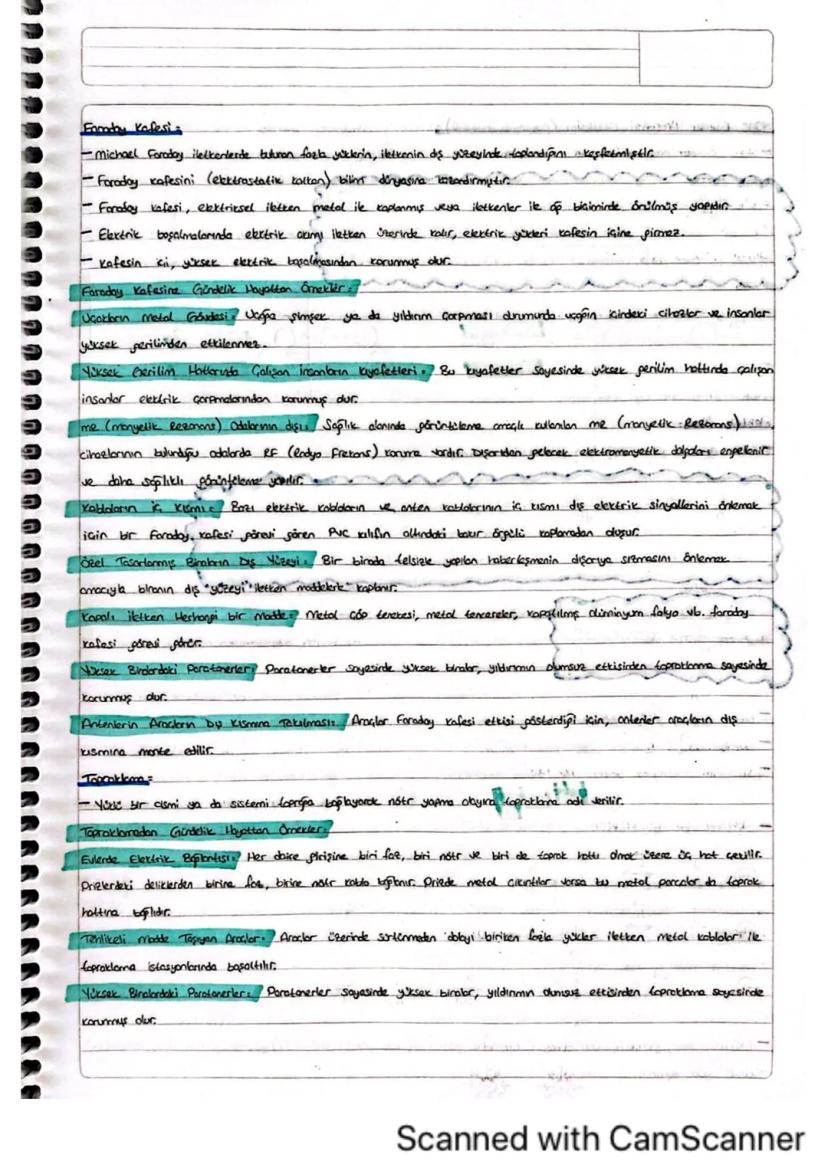 Faraday Kafesi:
- Michael Faraday iletkenlerde bulunan fazla yüklerin, iletkenin dış yüzeyinde toplandığını keşfetmiştir.
- Faraday kafesini (elektrostatik kalkan) bilim dünyasına kazandırmıştır.
- Faraday kafesi, elektriksel iletken metal ile kaplanmış veya iletkenler ile ağ biçiminde örülmüş yapıdır.
- Elektrik boşalmalarında elektrik akımı iletken üzerinde kalır, elektrik yükleri kafesin içine girmez.
- Kafesin içi, yüksek elektrik boşalmasından korunmuş olur.
Faraday Kafesine Gündelik Hayattan Örnekler:
Uçakların Metal Gövdesi: Uçağa şimşek ya da yıldırım çarpması durumunda uçağın içindeki cihazlar ve insanlar
yüksek gerilimden etkilenmez.
Yüksek Gerilim Hatlarında Çalışan İnsanların Kıyafetleri: Bu kıyafetler sayesinde yüksek gerilim hattında çalışan
insanlar elektrik çarpmalarından korunmuş olur.
MR (Manyetik Rezonans) Odalarının dışı: Sağlık alanında görüntüleme amaçlı kullanılan MR (Manyetik Rezonans)
cihazlarının bulunduğu odalarda RF (Radyo Frekans) koruma vardır. Dışarıdan gelecek elektromanyetik dalgaları engellenir
ve daha sağlıklı görüntüleme yapılır.
Kabloların iç Kısmı: Bazı elektrik kabloların ve anten kablolarının iç kısmı dış elektrik sinyallerini önlemek
için bir Faraday kafesi görevi gören PVC kılıfın altındaki bakır örgülü kaplamadan oluşur.
Özel Tasarlanmış Binaların Dış Yüzeyi: Bir binada telsizle yapılan haberleşmenin dışarıya sızmasını önlemek
amacıyla binanın dış yüzeyi iletken maddelerle kaplanır.
Kapalı iletken Herhangi bir Madde: Metal çöp tenekesi, metal tencereler, kapatılmış alüminyum folyo vb. faraday
kafesi görevi görür.
Yüksek Binalardaki Paratonerler: Paratonerler sayesinde yüksek binalar, yıldırımın olumsuz etkisinden topraklama sayesinde
korunmuş olur.
Antenlerin Araçların Dış Kısmına Takılması: Araçlar Faraday kafesi etkisi gösterdiği için, antenler araçların dış
kısmına monte edilir.
Topraklama:
- Yüklü bir cismi ya da sistemi toprağa bağlayarak nötr yapma olayına topraklama adı verilir.
Topraklamadan Gündelik Hayattan Örnekler:
Evlerde Elektrik Bağlantısı: Her daire girişine biri faz, biri nötr ve biri de toprak hattı olmak üzere üç hat çekilir.
Prizlerdeki deliklerden birine faz, birine nötr kablo bağlanır. Prizde metal çıkıntılar varsa bu metal parçalar da toprak
hattına bağlıdır.
Tehlikeli Madde Taşıyan Araçlar: Araçlar üzerinde sürtünmeden dolayı biriken fazla yükler iletken metal kablolar ile
topraklama istasyonlarında boşaltılır.
Yüksek Binalardaki Paratonerler: Paratonerler sayesinde yüksek binalar, yıldırımın olumsuz etkisinden topraklama sayesinde
korunmuş olur.
Scanned with CamScanner